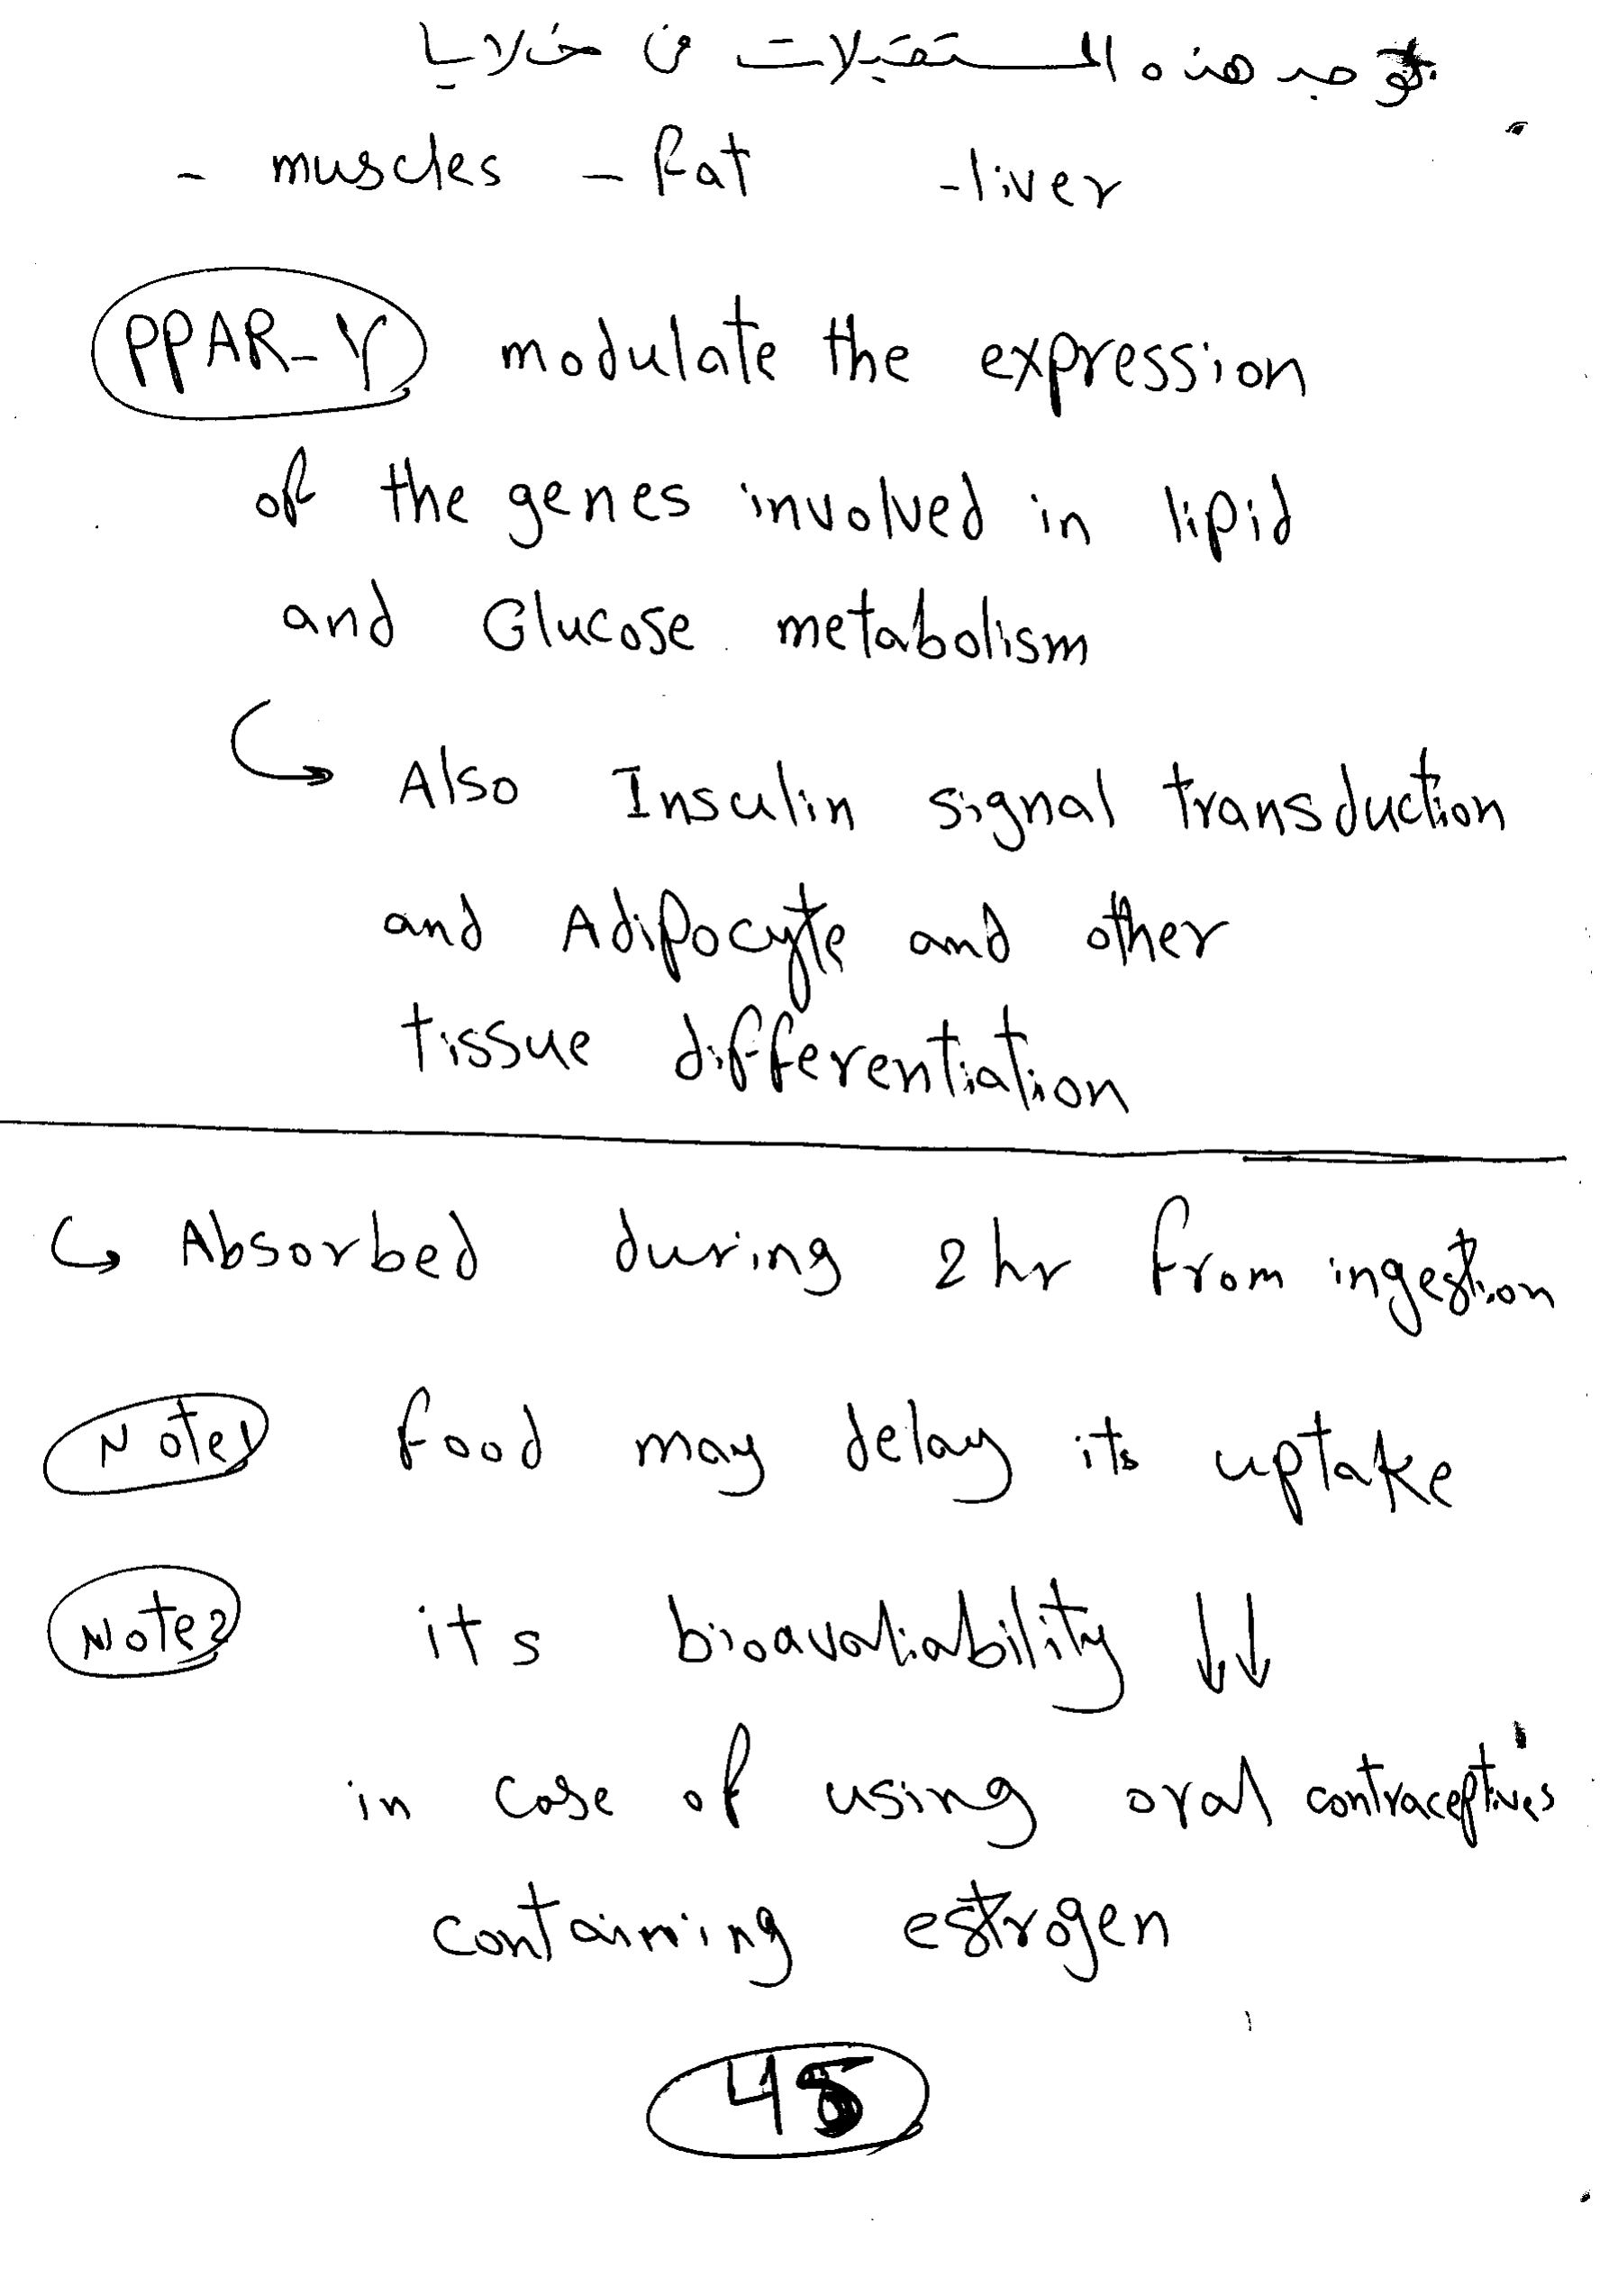 توجد هذه المستقبلات في خلايا
- muscles - fat -liver
PPAR-γ modulate the expression
of the genes involved in lipid
and Glucose metabolism
↳ Also Insulin signal transduction
and Adipocyte and other
tissue differentiation
↳ Absorbed during 2hr from ingestion
Note1 food may delay its uptake
Note2 its bioavaliability ↓↓
in case of using oral contraceptives
containing estrogen